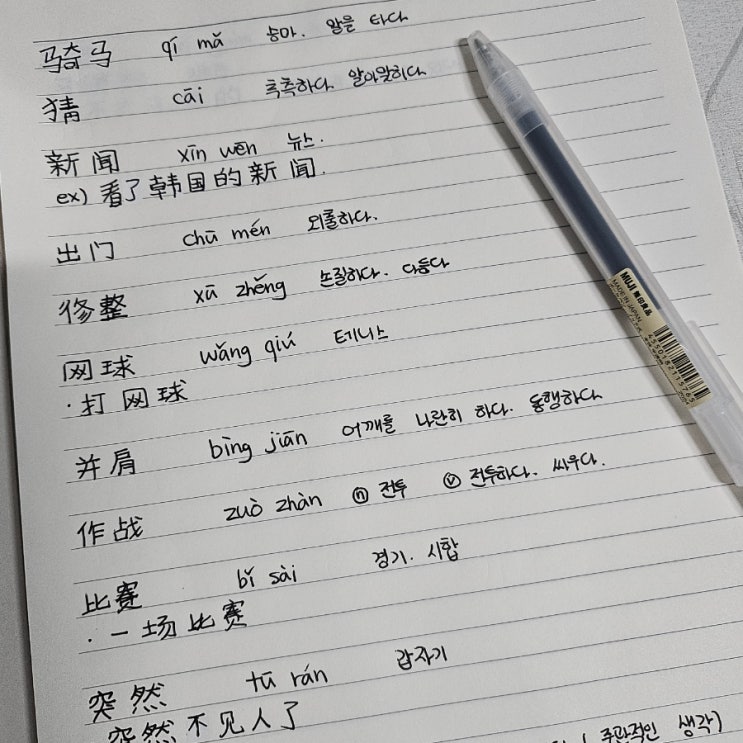 骑马 qí mǎ 승마. 말을 타다
猜 cāi 추측하다. 알아맞히다
新闻 xīn wēn 뉴스.
ex) 看了韩国的新闻.
出门 chū mén 외출하다.
修整 xiū zhěng 손질하다. 다듬다
网球 wǎng qiú 테니스
· 打网球
并肩 bìng jiān 어깨를 나란히 하다. 동행하다
作战 zuò zhàn ⓝ 전투 ⓥ 전투하다. 싸우다.
比赛 bǐ sài 경기. 시합
· 一场比赛
突然 tū rán 갑자기
突然不见人了
주관적인 생각)
MUJI 無印良品
MADE IN JAPAN